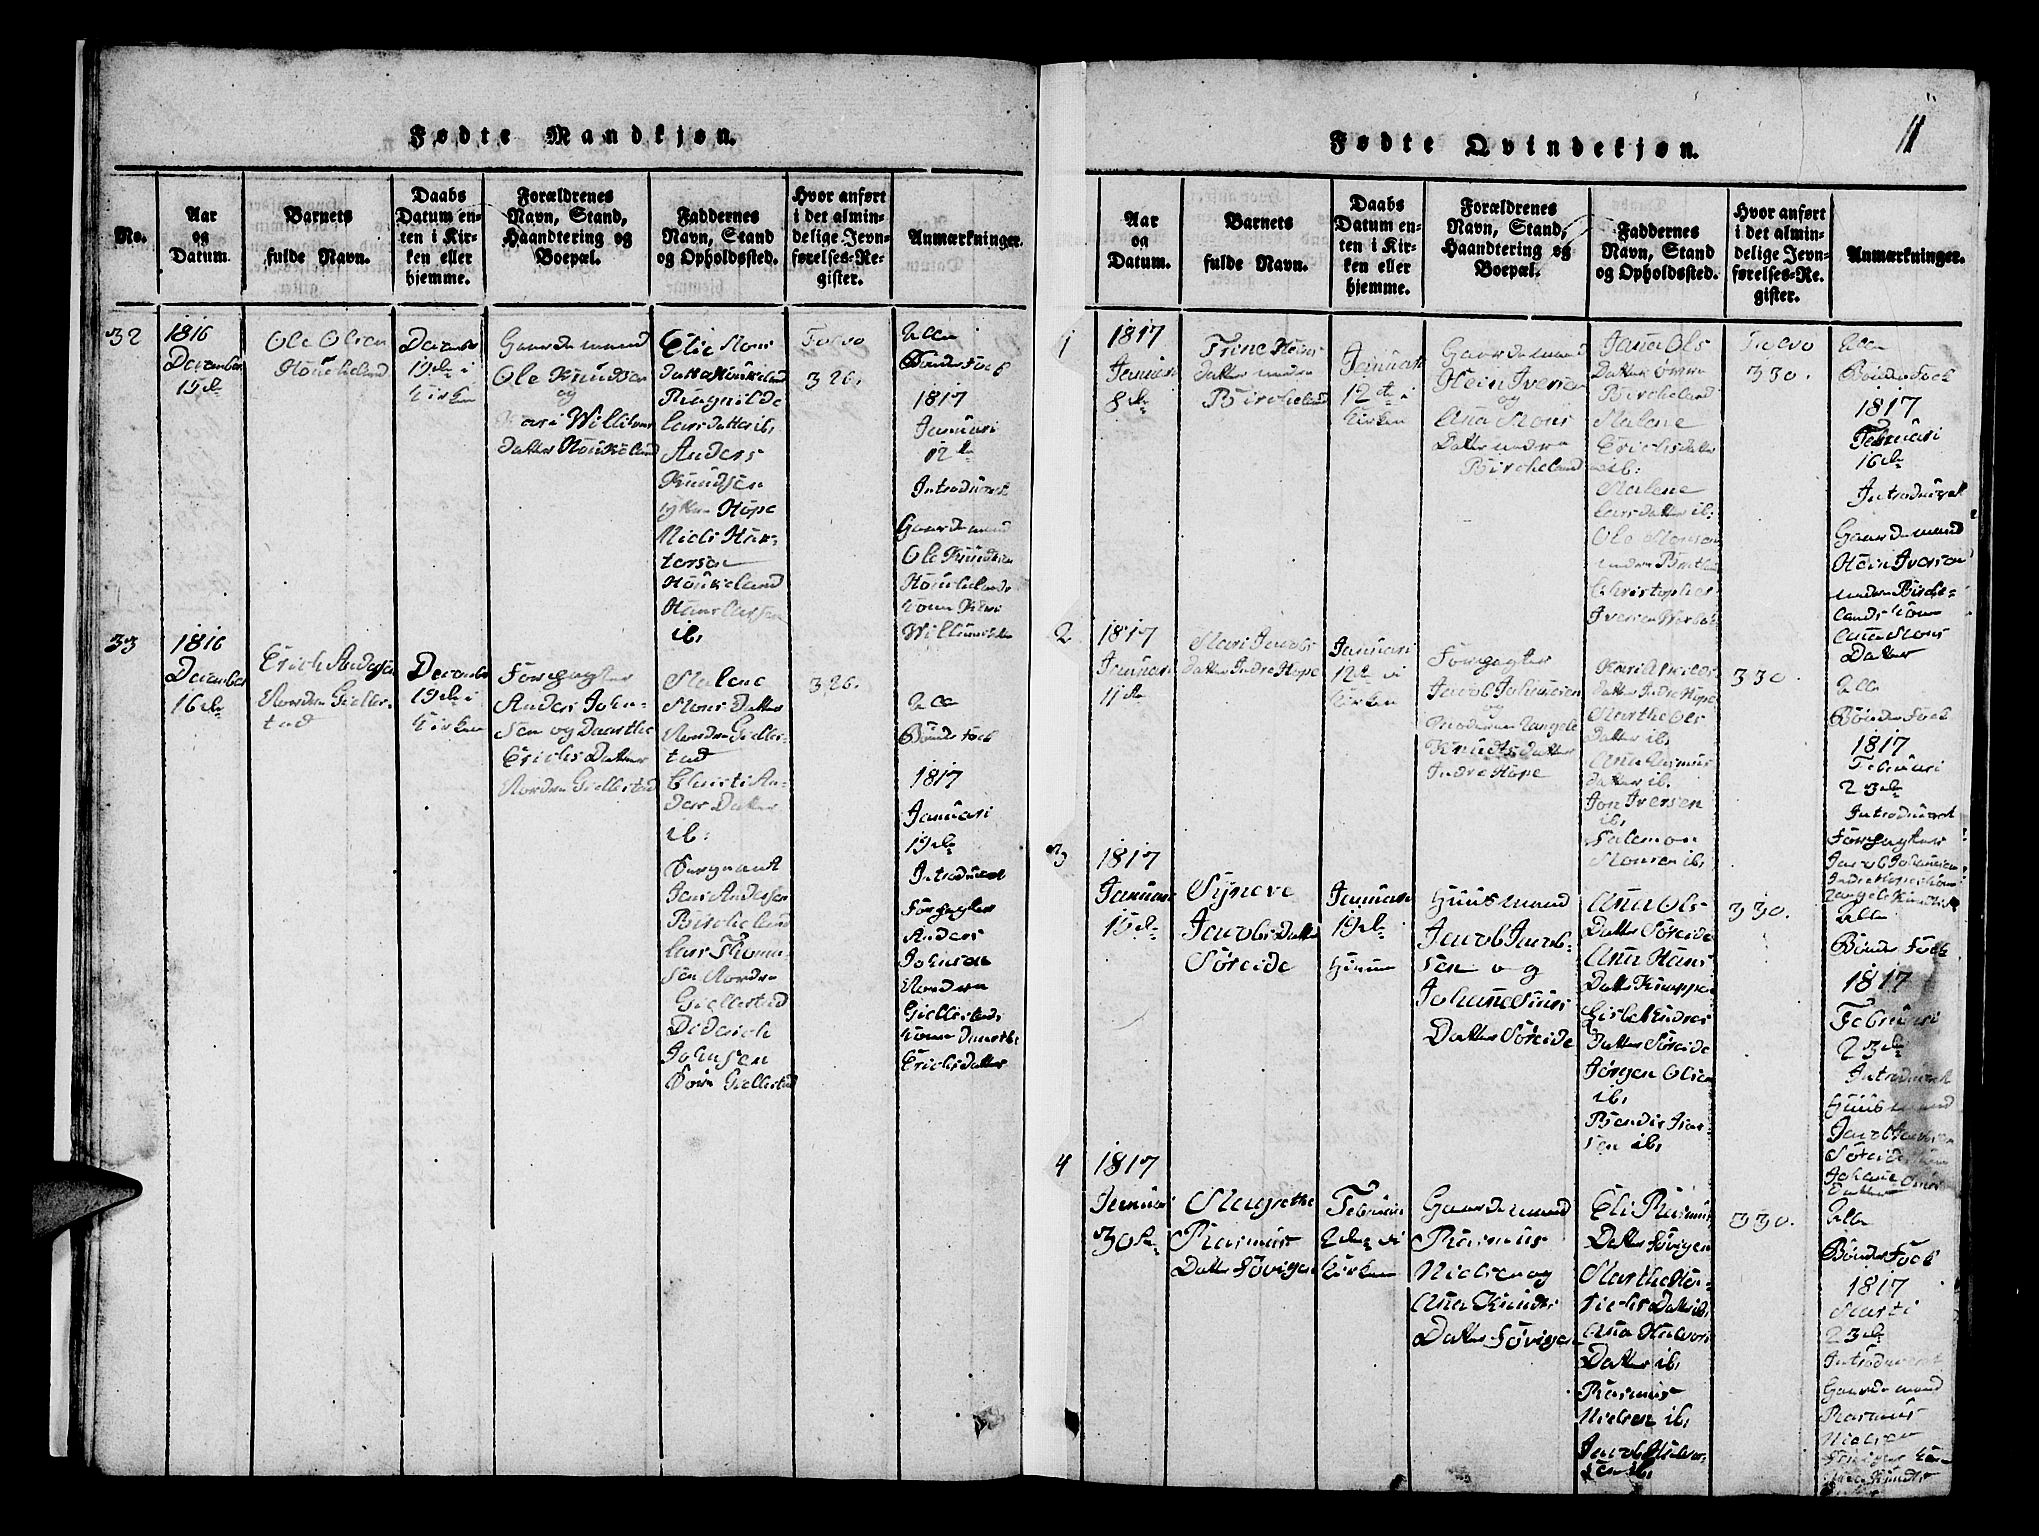 Fødte Mandkjøn.
No.
Aar
og
Datum.
Barnets
fulde Navn.
Daabs
Datum en-
ten i Kir-
ken eller
hjemme.
Forældrenes
Navn, Stand,
Haandtering og
Boepæl.
Faddernes
Navn, Stand
og Opholdssted.
Hvor anført
i det almin-
delige Jevn-
førelses-Re-
gister.
Anmærkninger.
32
1816
December
15de
Ole Olsen
Houkeland
December
19de i
Kirken
Gaardemand
Ole Knudsen
og
Kari Willums
Datter Houkeland
Elie Mons
Datter Houkeland
Ragnilde
Larsdatter ib:
Anders
Knudsen
Hope
Niels
Houkeland
Hans Larsen
ib:
Folio
326.
Alle
Bønder Folk
1817
Januari
12te
Introduceret
Gaardemand
Ole Knudsen
Houkelands
Kone Kari
Willumsdatter
33
1816
December
16de
Erich Andersen
Nordre Gielle-
stad
December
19de i
Kirken
Forpagter
Anders John-
sen og Dorthe
Erichs Datter
Nordre Giellestad
Malene
Mons Datter
Nordre Gielle-
stad
Christi An-
ders Datter
ib:
Sergeant
Jens Andersen
Bircheland
Lars Thom-
sen Nordre
Giellestad
Dederich
Johnsen
Søre Giellestad
326.
Alle
Bønder Folk
1817
Januari
19de
Introduceret
Forpagter
Anders
Johnsen
Nordre
Giellestads
Kone Dorthe
Erichs Datter
Fødte Qvindekjøn.
11
Aar
og
Datum.
Barnets
fulde Navn.
Daabs
Datum en-
ten i Kir-
ken eller
hjemme.
Forældrenes
Navn, Stand,
Haandtering og
Boepæl.
Faddernes
Navn, Stand
og Opholdssted.
Hvor anført
i det almin-
delige Jevn-
førelses-Re-
gister.
Anmærkninger.
1
1817
Januari
8de
Trine Heins
Datter nedre
Bircheland
Januari
12te i
Kirken
Gaardemand
Hein Iversen
og
Ana Mons
Datter nedre
Bircheland
Jana Ols
Datter øvre
Bircheland
Malene
Erichsdatter
ib:
Malene
Larsdatter ib:
Ole Monsen
nedre
Christopher
Iversen
Folio
330.
Alle
Bønder Folk
1817
Februari
16de
Introduceret
Gaardemand
Hein Iversen
nedre Birche-
lands Kone
Ana Mons
Datter
2
1817
Januari
11de
Mari Jacobs
Datter Indre Hope
Januari
12te i
Kirken
Forpagter
Jacob Johnsen
og
Moderen
Knudts Datter
Indre Hope
Kari
Datter Indre Hope
Marthe Ols
Datter ib:
Ana
Datter ib:
Jon Iversen
ib:
Salomon
Monsen ib:
330.
Alle
Bønder Folk
1817
Februari
23de
Introduceret
Forpagter
Jacob Johnsen
Indre Hopes Kone
3
1817
Januari
15de
Syneve
Jacobs Datter
Søreide
Januari
19de
hjemme
Huusmand
Jacob Jacob-
sen og
Johane Simes
Datter Søreide
Ana Ols
Datter Søreide
Ana Hans
Datter Knappen
Datter Søreide
Jørgen Olsen
ib:
ib:
330.
Alle
Bønder Folk
1817
Februari
23de
Introduceret
Huusmand
Jacob Jacobsen
Søreides Kone
Johane
Datter
4
1817
Januari
30te
Magrethe
Rasmus
Datter Søvigen
Februari
2den i
Kirken
Gaardemand
Rasmus
Nielsen og
Ana Knuds
Datter Søvigen
Eli Rasmus
Datter Søvigen
Marthe
Datter ib:
Ana Halvors
Datter ib:
Rasmus
Nielsen ib:
Jacob Halvor-
sen ib:
330.
Alle
Bønder Folk
1817
Marti
23de
Introduceret
Gaardemand
Rasmus
Nielsen